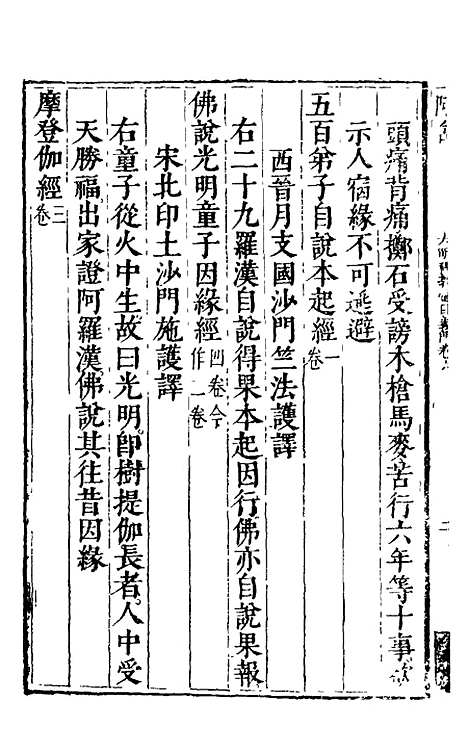 頭痛背痛擲石受謗木槍馬麥苦行六年等十事
示人宿緣不可逃避
五百弟子自說本起經一卷
西晉月支國沙門竺法護譯
右二十九羅漢自說得果本起因行佛亦自說果報
佛說光明童子因緣經四卷今作一卷
宋北印土沙門施護譯
右童子從火中生故曰光明卽樹提伽長者人中受
天勝福出家證阿羅漢佛說其往昔因緣
摩登伽經三卷